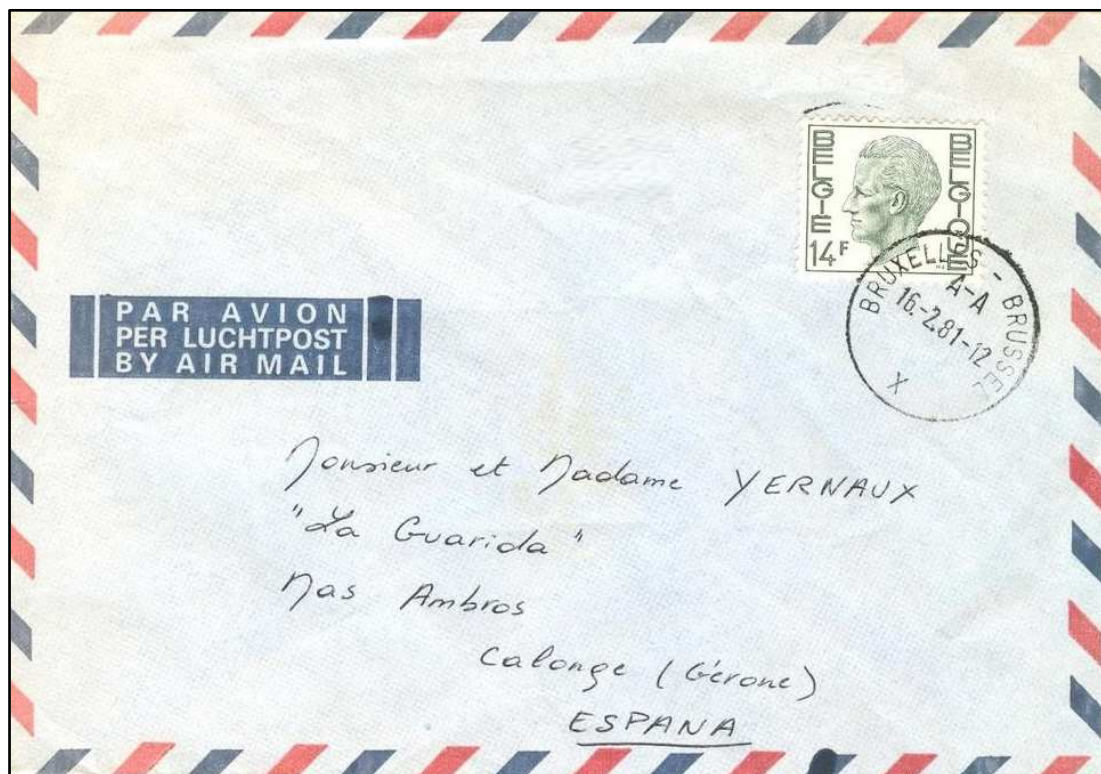 BELGIE
BELGIQUE
14F
BRUXELLES - BRUSSEL
A-A
16.-2.81-12
X
PAR AVION
PER LUCHTPOST
BY AIR MAIL
Monsieur et Madame YERNAUX
"La Guarida"
Mas Ambros
Calonge (Gérone)
ESPANA